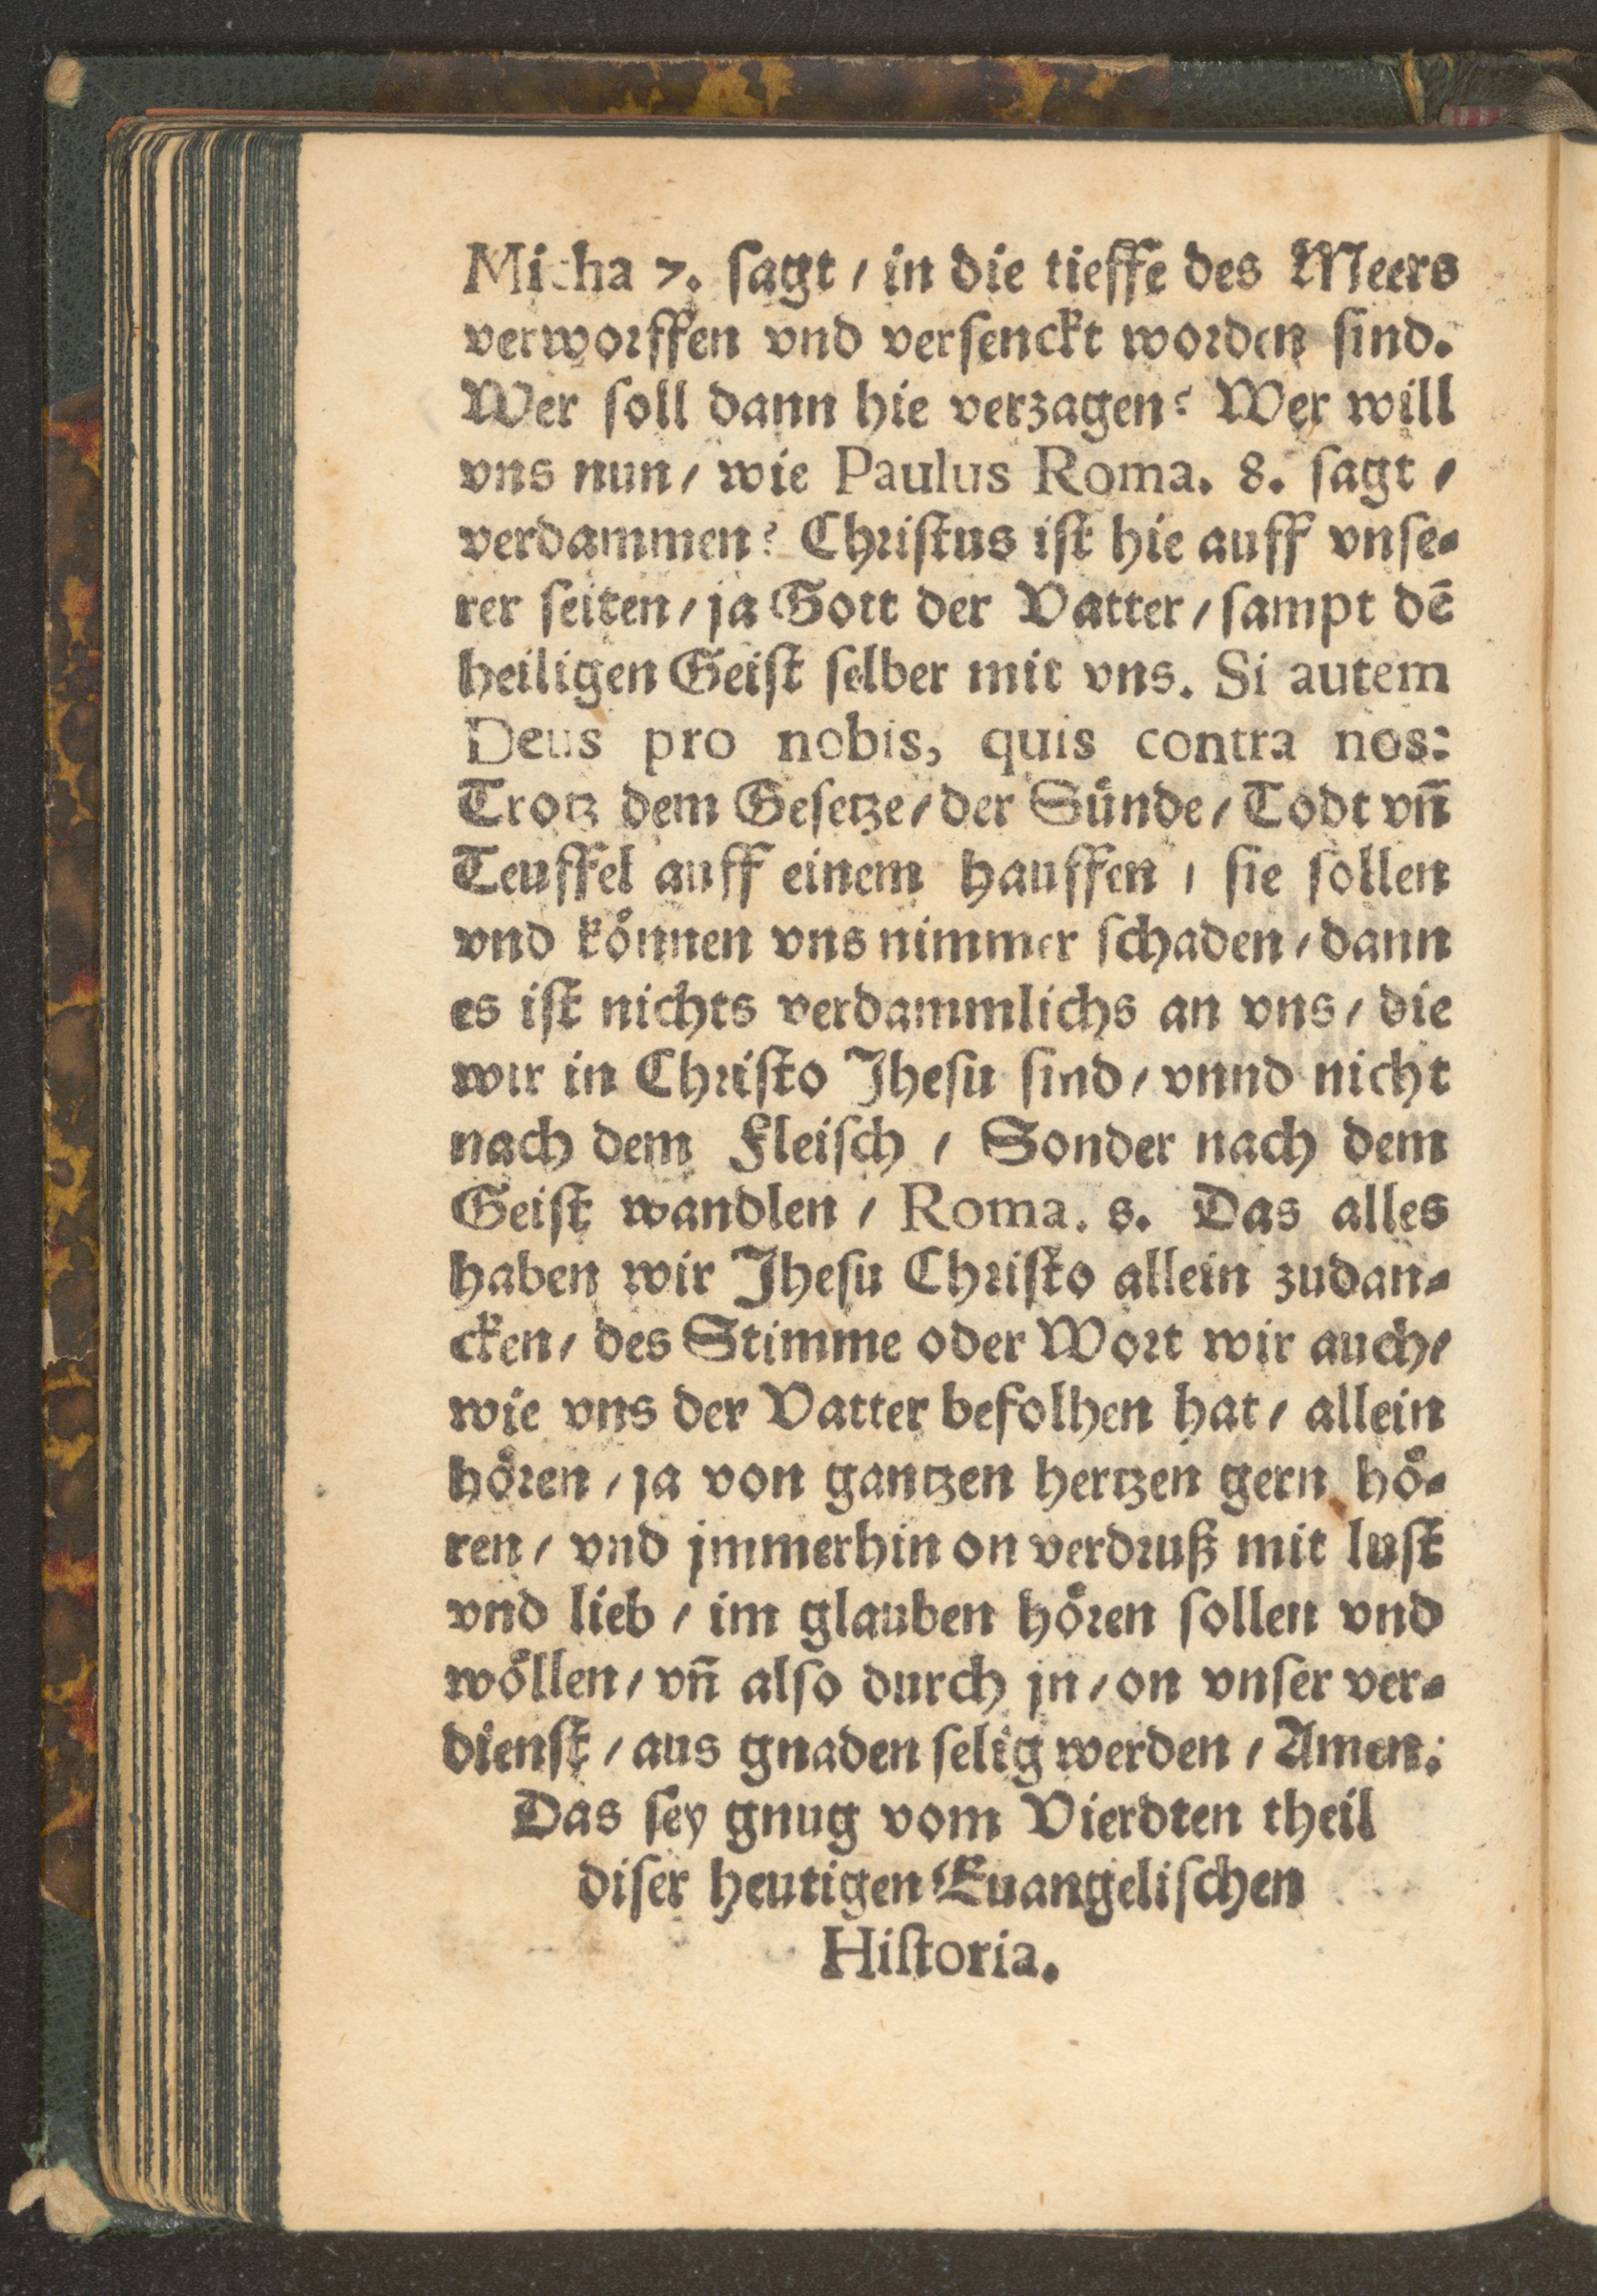 Micha 7. ſagt / in die tieffe des Meers
verworffen vnd verſenckt worden ſind.
Wer ſoll dann hie verzagen? Wer will
vns nun / wie Paulus Roma. 8. ſagt /
verdammen? Chriſtus iſt hie auff vnſe-
rer ſeiten / ja Gott der Vatter / ſampt dē
heiligen Geiſt ſelber mit vns. Si autem
Deus pro nobis, quis contra nos?
Trotz dem Geſetze / der Suͤnde / Todt vn̄
Teuffel auff einem hauffen / ſie ſollen
vnd koͤnnen vns nimmer ſchaden / dann
es iſt nichts verdammlichs an vns / die
wir in Chriſto Jheſu ſind / vnnd nicht
nach dem Fleiſch / Sonder nach dem
Geiſt wandlen / Roma. 8. Das alles
haben wir Jheſu Chriſto allein zudan-
cken / des Stimme oder Wort wir auch /
wie vns der Vatter befolhen hat / allein
hoͤren / ja von gantzen hertzen gern hoͤ-
ren / vnd jmmerhin on verdruß mit luſt
vnd lieb / im glauben hoͤren ſollen vnd
woͤllen / vn̄ alſo durch jn / on vnſer ver-
dienſt / aus gnaden ſelig werden / Amen.
Das ſey gnug vom Vierdten theil
diſer heutigen Euangeliſchen
Hiſtoria.